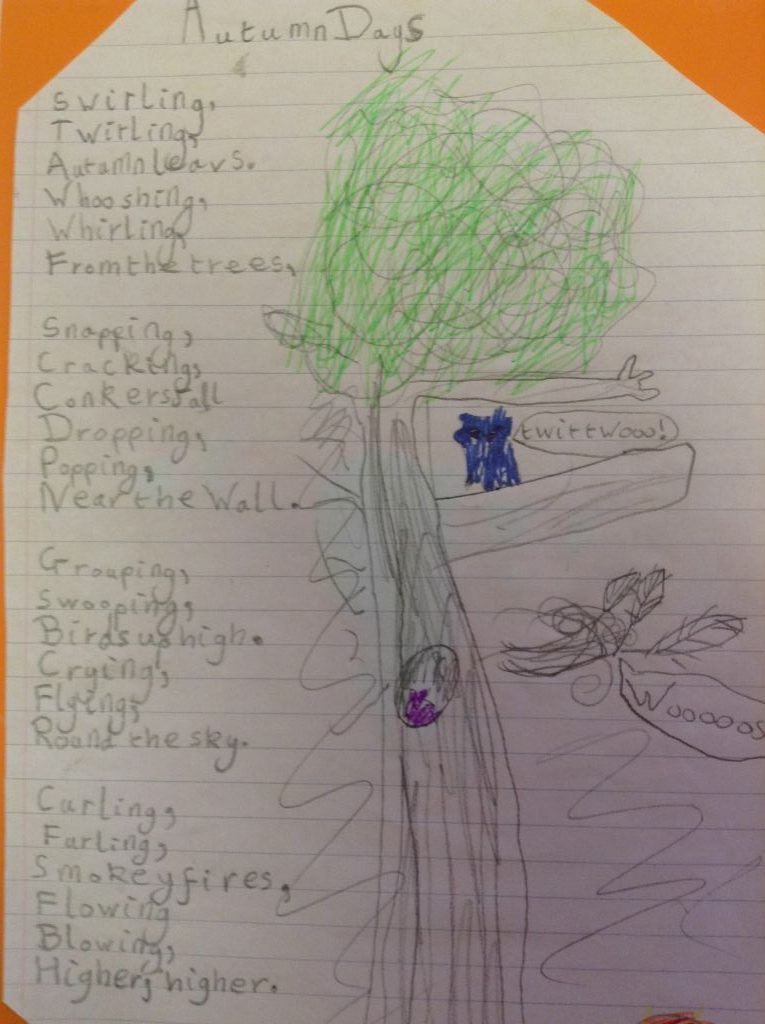 Autumn Days
Swirling,
Twirling,
Autumn leavs.
Whooshing,
Whirling,
From the trees,
Snapping,
Cracking,
Conkers fall
Dropping,
Popping,
Near the Wall.
Grouping,
Swooping,
Birds up high.
Crying,
Flying,
Round the sky.
Curling,
Furling,
Smokey fires,
Flowing
Blowing,
Higher, higher.
twittwooo!
Wooooos